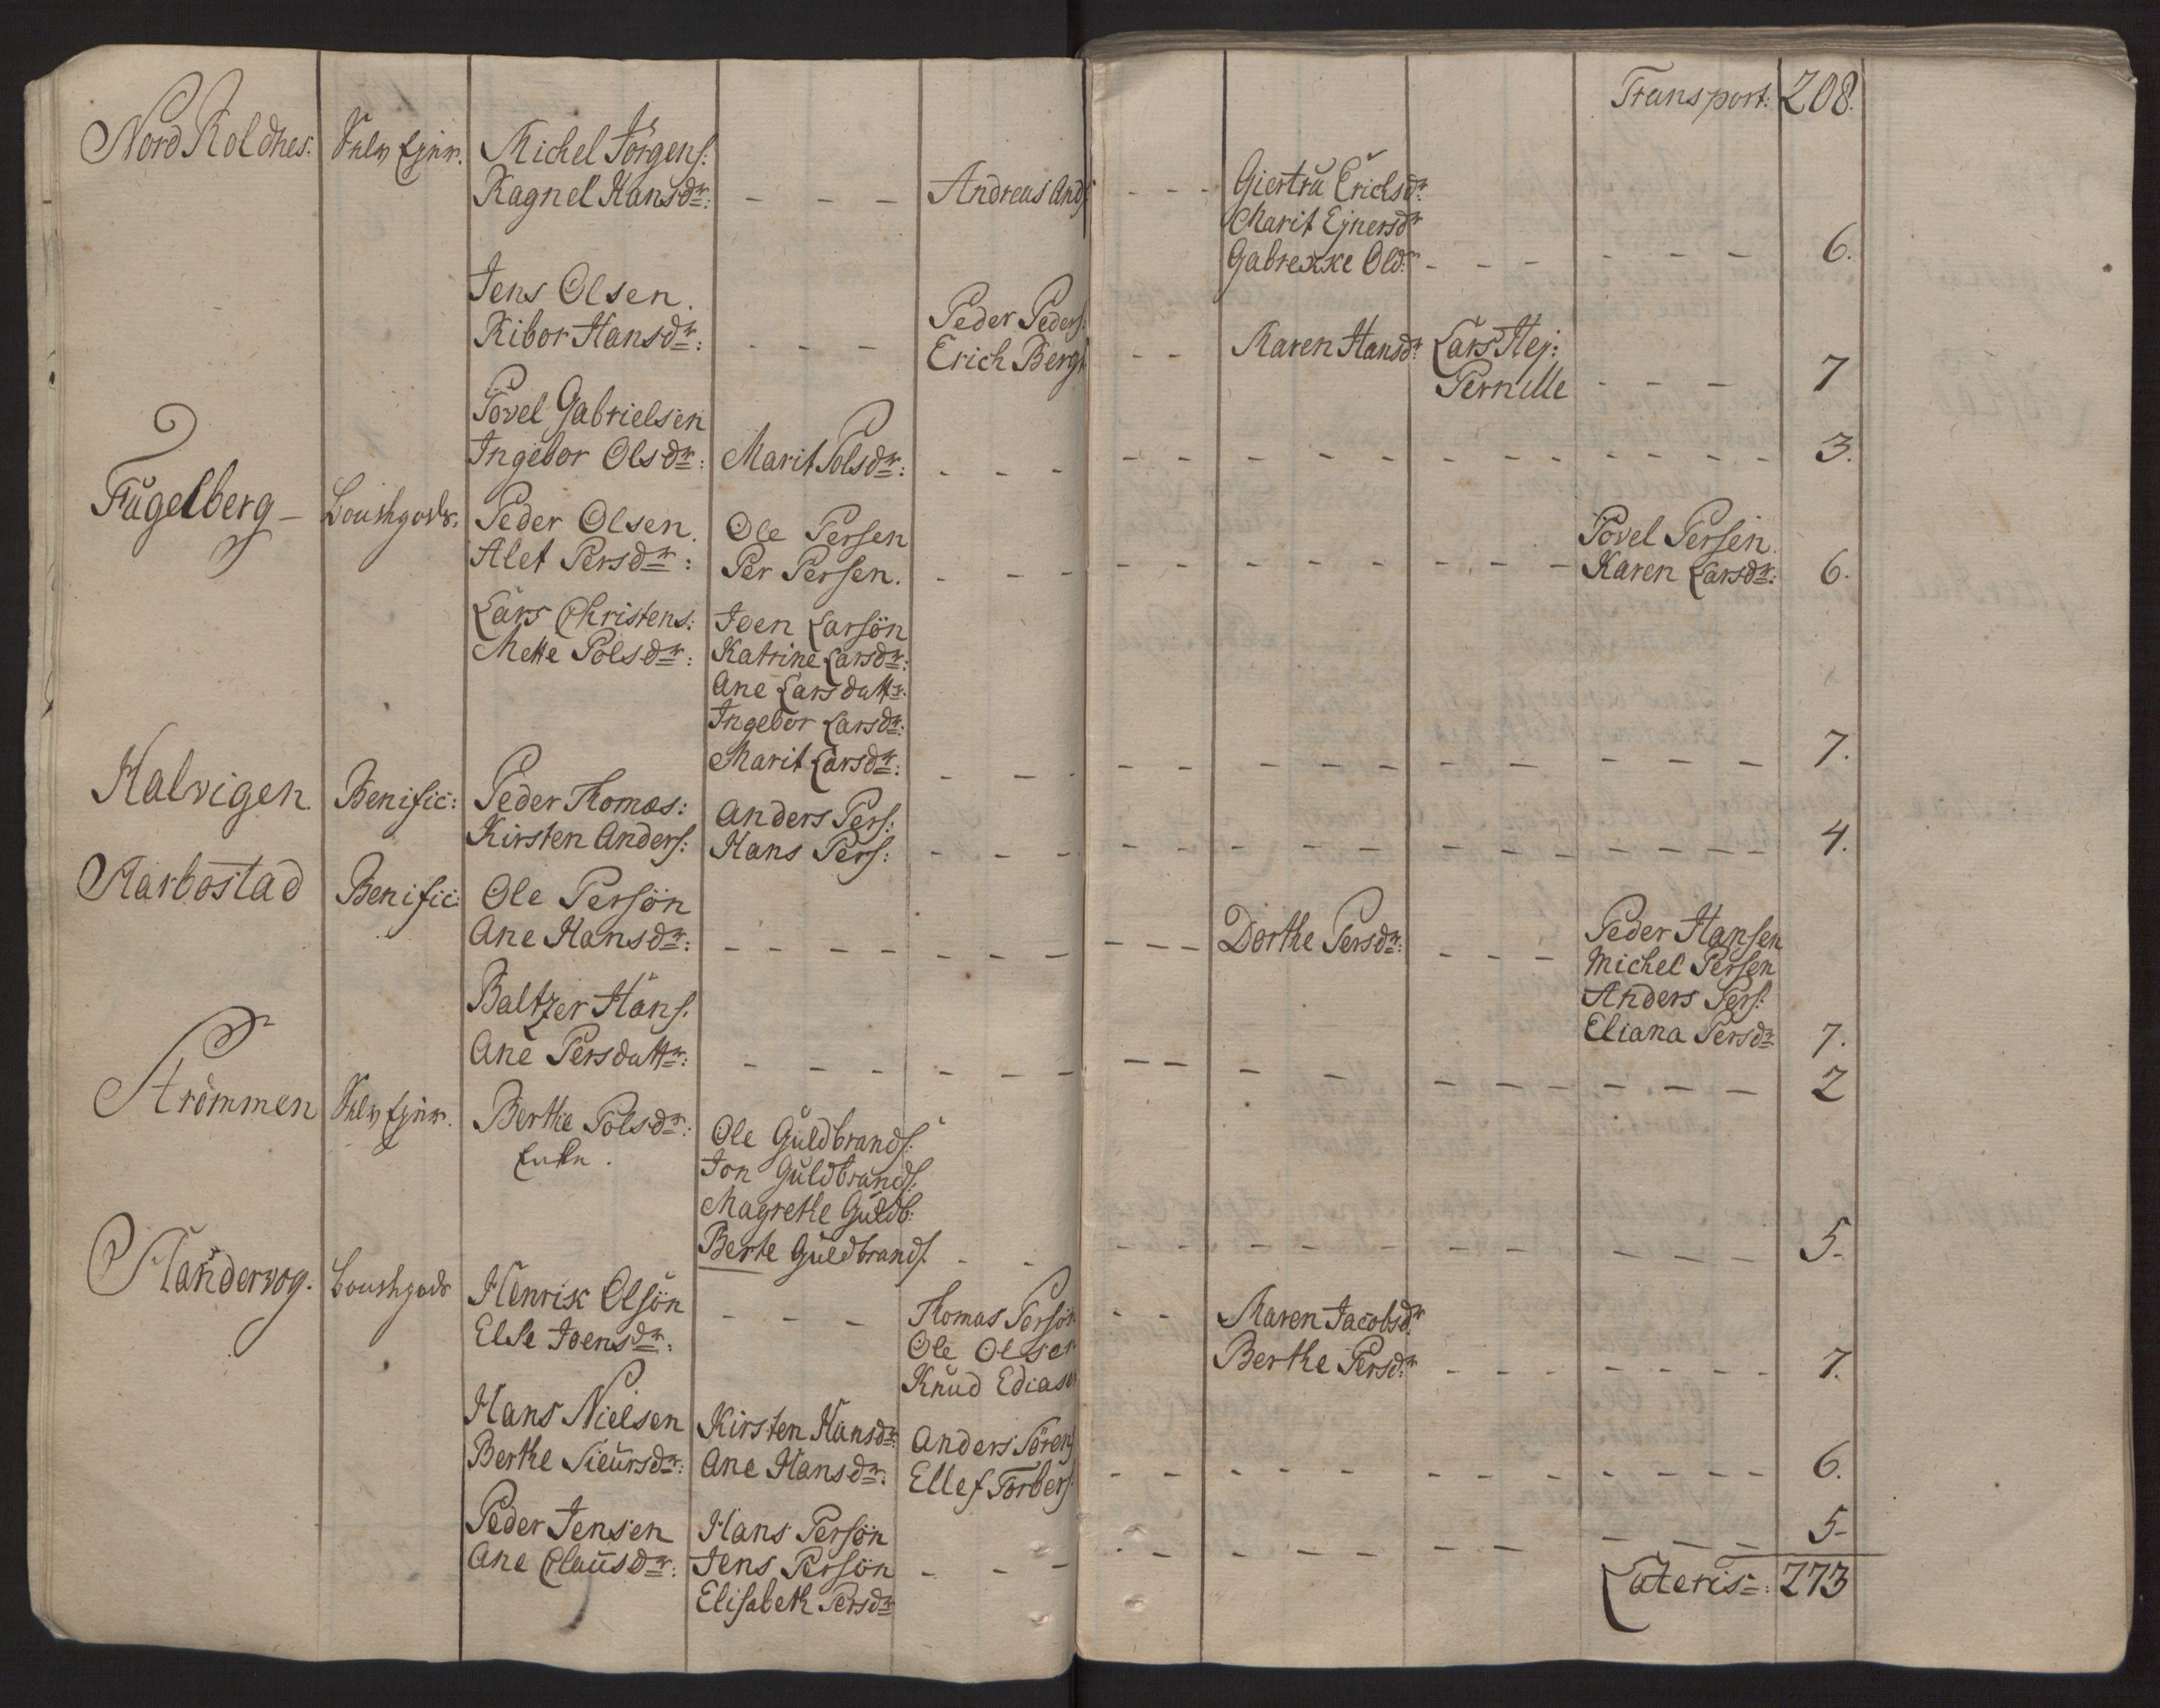 Transport: 208.
Nord Roldnes. Selv Ejer. Michel Jörgens:
Ragnel Hansdr: - - - Andreas Ands - - - Giertru Erichsdr:
Marit Ejnersdr
Gabrexke Oldr - - - - - - 6.
Jens Olsen.
Ribor Hansdr: - - - Peder Peders:
Erich Bergt - - Maren Hansdr: Lars Hej:
Pernille - - - 7
Povel Gabrielsen
Ingebor Olsdr: Marit Polsdr: - - - - - - 3.
Fugelberg - Peder Olsen. Ole Persen Povel Persen.
Alet Persdr: Per Persen. - - - - - - Karen Larsdr: 6.
Lars Christens: Joen Larsön
Mette Polsdr: Katrine Larsdr:
Ane Larsdattr:
Ingebor Larsdr:
Marit Larsdr: - - - - - - 7.
Kalvigen. Benific: Peder Thomæs: Anders Pers:
Kirsten Anders: Hans Pers: - - - - - - 4.
Aarbostad Benific: Ole Persön
Ane Hansdr: - - - - - - Dorthe Persdr: - - - Peder Hansen
Michel Persen
Anders Pers:
Eliana Persdr: 7.
Baltzer Hans.
Ane Persdattr: - - - - - - 2
Strömmen Selv Ejer. Berthe Polsdr: Ole Guldbrands:
Enke. Jon Guldbrands:
Magrethe Guldb:
Berte Guldbrands. - - - - - - 5-
Henrik Olsön - - - Thomas Persön - - Maren Jacobsdr:
Else Joensdr: Ole Olsen Berthe Persdr: - - - - - - 7.
Knud Ediasen
Hans Nielsen Kirsten Hansdr: Anders Sörens
Berthe Sieursdr: Ane Hansdr: Ellef Torbers - - - - - - 6.
Peder Jensen Hans Persön
Ane Clausdr: Jens Persön - - - - - - 5-
Elisabeth Persdr:
Lateris: 273